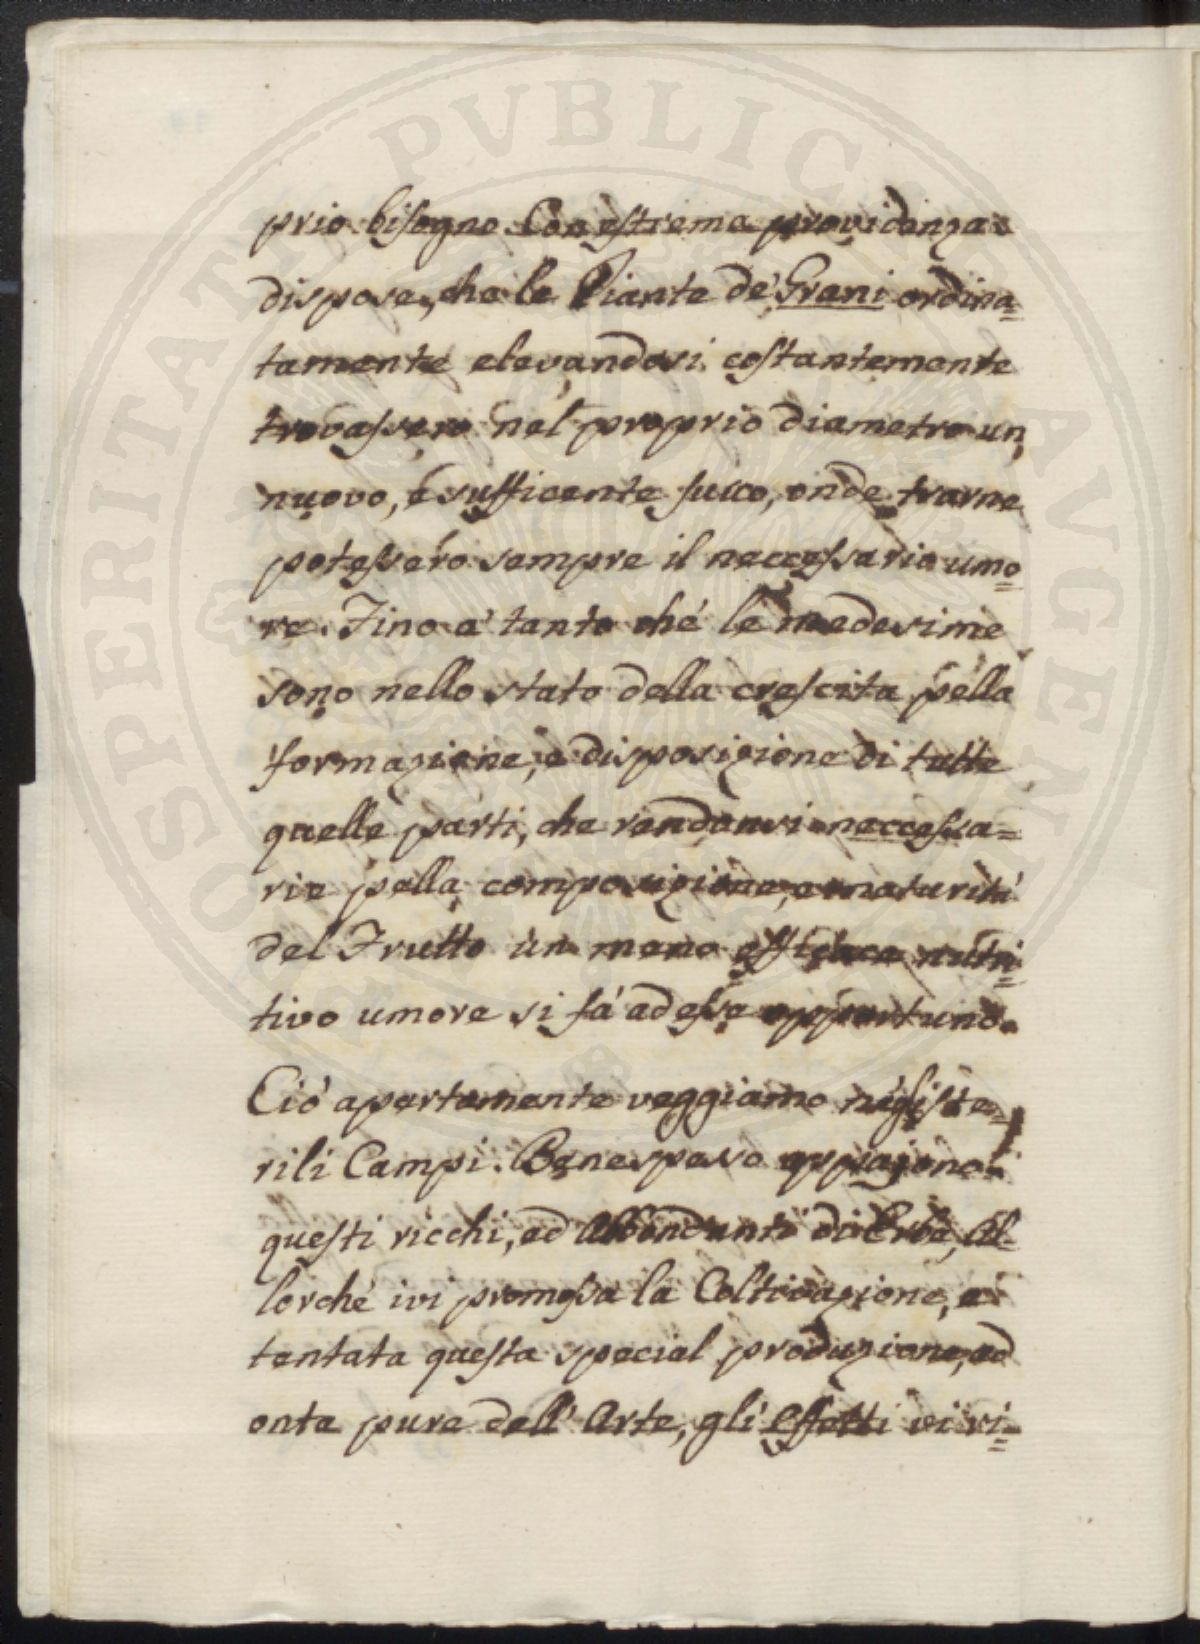 prio bisogno. Con estrema providenza
dispose, che le Piante de' Grani ordina=
tamente elevandosi costantemente
trovassero nel proprio diametro un
nuovo, é sufficente succo, onde trarne
potessero sempre il neccessario umo=
re. Fino a' tanto ché le medesime
sono nello stato della crescita pella
formazione, e disposizione di tutte
quelle parti, che rendonsi neccessa=
rie pella composizione, e maturitá
del Frutto un meno efficace nutri=
tivo umore si fá ad esse opportuno.
Ció apertamente veggiamo négli ste=
rili Campi. Bene spesso appajono
questi ricchi, ed abbondanti di Erbe, al=
lorché ivi promossa la Coltivazione, e
tentata questa special produzione, ad
onta pure dell' Arte, gli effetti vi ri=
PROSPERITATI PVBLICAE AVGENDAE